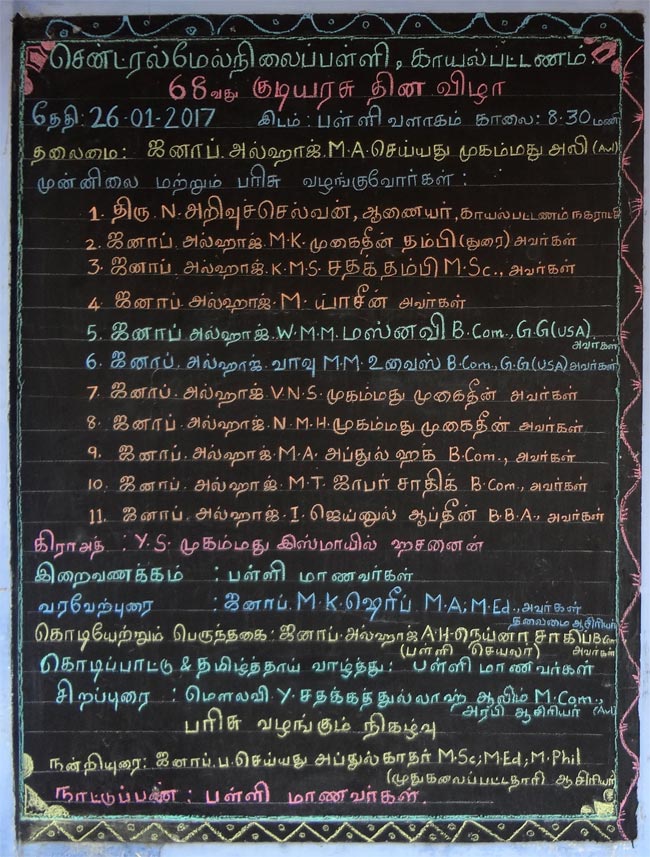 சென்ட்ரல்மேல்நிலைப்பள்ளி, காயல்பட்டணம்
68வது குடியரசு தின விழா
தேதி: 26-01-2017 இடம்: பள்ளி வளாகம் காலை: 8-30 மணி
தலைமை: ஜனாப். அல்ஹாஜ். M.A. செய்யது முகம்மது அலி (Avl)
முன்னிலை மற்றும் பரிசு வழங்குவோர்கள் :
1. திரு. N. அறிவுச்செல்வன், ஆணையர், காயல்பட்டணம் நகராட்சி
2. ஜனாப். அல்ஹாஜ். M.K. முகைதீன் தம்பி (துரை) அவர்கள்
3. ஜனாப். அல்ஹாஜ். K.M.S. சதக் தம்பி M.Sc., அவர்கள்
4. ஜனாப். அல்ஹாஜ். M. யாசீன் அவர்கள்
5. ஜனாப். அல்ஹாஜ். W.M.M. மஸ்னவி B.Com., G.G(USA)
அவர்கள்
6. ஜனாப். அல்ஹாஜ். வாவு M.M. உவைஸ் B.Com., G.G(USA) அவர்கள்
7. ஜனாப். அல்ஹாஜ் V.N.S. முகம்மது முகைதீன் அவர்கள்
8. ஜனாப். அல்ஹாஜ். N.M.H. முகம்மது முகைதீன் அவர்கள்
9. ஜனாப். அல்ஹாஜ். M.A. அப்துல் ஹக் B.Com., அவர்கள்
10. ஜனாப். அல்ஹாஜ். M.T. ஜாபர் சாதிக் B.Com., அவர்கள்
11. ஜனாப். அல்ஹாஜ். I. ஜெய்னுல் ஆப்தீன் B.B.A., அவர்கள்
கிராஅத் : Y.S. முகம்மது இஸ்மாயில் ஹசனைன்
இறைவணக்கம் : பள்ளி மாணவர்கள்
வரவேற்புரை : ஜனாப். M.K. ஷெரீப் M.A; M.Ed., அவர்கள்
தலைமை ஆசிரியர்
கொடியேற்றும் பெருந்தகை: ஜனாப். அல்ஹாஜ் A.H. நெய்னா சாகிப் B.Com
(பள்ளி செயலர்) அவர்கள்
கொடிப்பாட்டு & தமிழ்த்தாய் வாழ்த்து: பள்ளி மாணவர்கள்
சிறப்புரை : மௌலவி. Y. சதக்கத்துல்லாஹ் ஆலிம் M.Com.,
அரபி ஆசிரியர் (Avl)
பரிசு வழங்கும் நிகழ்வு
நன்றியுரை: ஜனாப். ப. செய்யது அப்துல் காதர் M.Sc; M.Ed; M.Phil
(முதுகலைப்பட்டதாரி ஆசிரியர்
நாட்டுப்பண்: பள்ளி மாணவர்கள்.